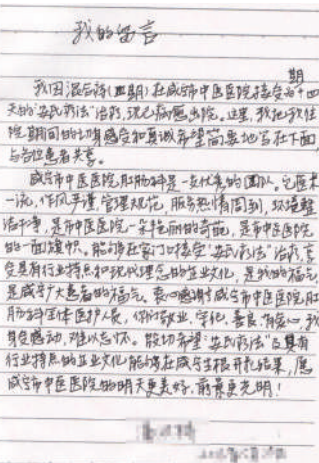 我的留言
期
我因混合痔(四期)在咸宁市中医医院接受为十四
天的"安氏疗法"治疗,现已病愈出院。这里,我把我住
院期间的切身感受和真诚希望简要地写在下面,
与各位患者共享。
咸宁市中医医院肛肠科是一支优秀的团队。它医术
一流,作风严谨,管理规范,服务热情周到,环境整
洁干净,是市中医医院一朵艳丽的奇葩,是市中医医院
的一面旗帜。能够在家门口接受"安氏疗法"治疗,享
受具有行业特点和现代理念的企业文化,是我的福气,
是咸宁广大患者的福气。衷心感谢咸宁市中医医院肛
肠科全体医护人员,你们敬业、学化、善良、有爱心,我
身受感动,难以忘怀。殷切希望:"安氏疗法"及具有
行业特点的企业文化能够在咸宁生根开花结果,愿
咸宁市中医医院的明天更美好,前景更光明!